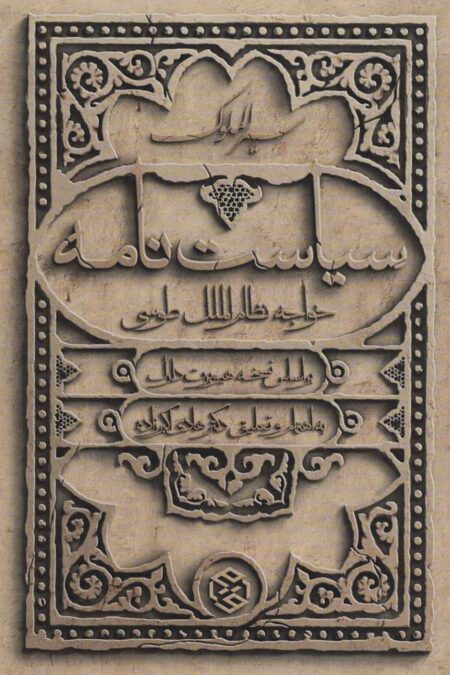 سیرالملوک
سیاست نامه
خواجه نظام‌الملک طوسی
براساس نسخه هیوبرت دارک
به اهتمام و تعلیق دکتر هادی اکبرزاده